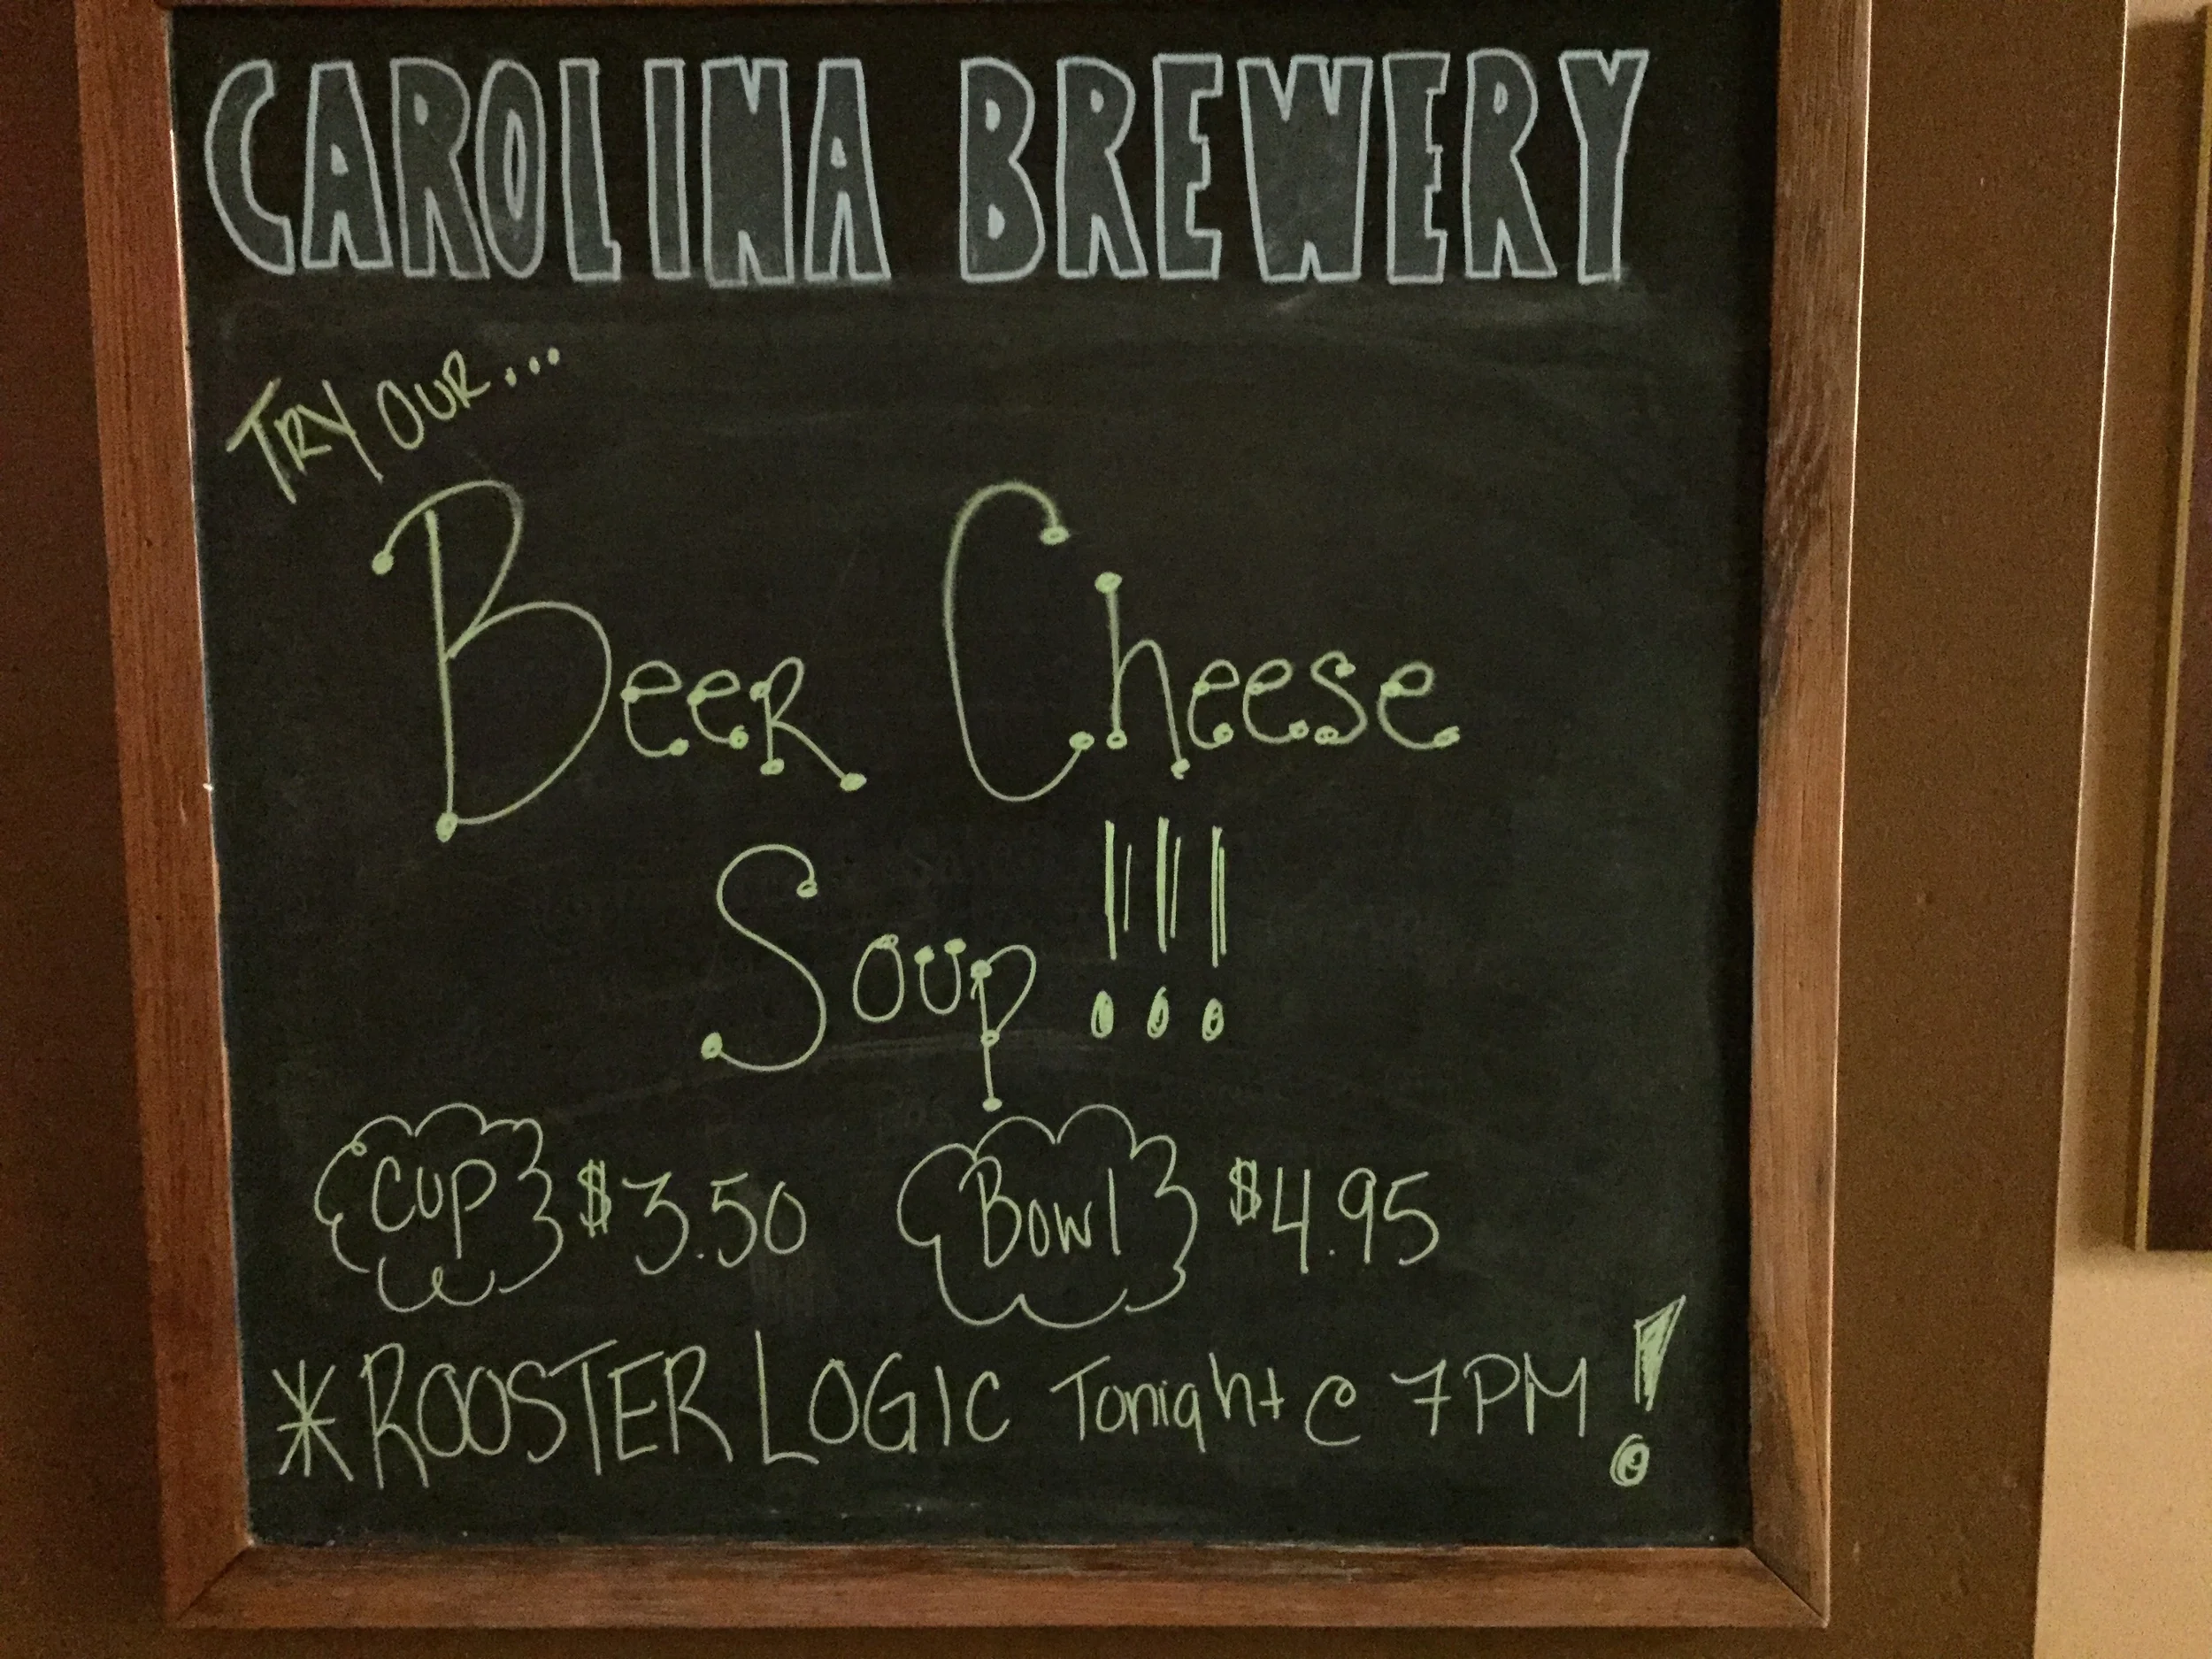 CAROLINA BREWERY
TRY OUR...
Beer Cheese
Soup!!!
Cup $3.50 Bowl $4.95
*ROOSTER LOGIC Tonight @ 7PM!